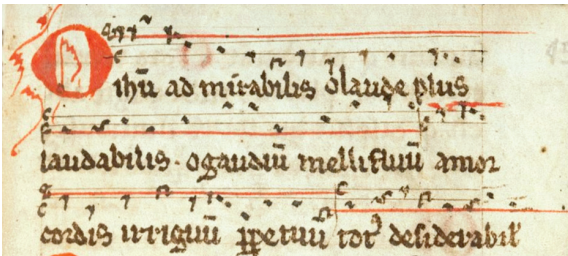 O ihū ad mirabilis o laude plus
laudabilis · o gaudiū mellifluū amor
cordis irriguū ꝑpetuū totꝰ desiderabil'